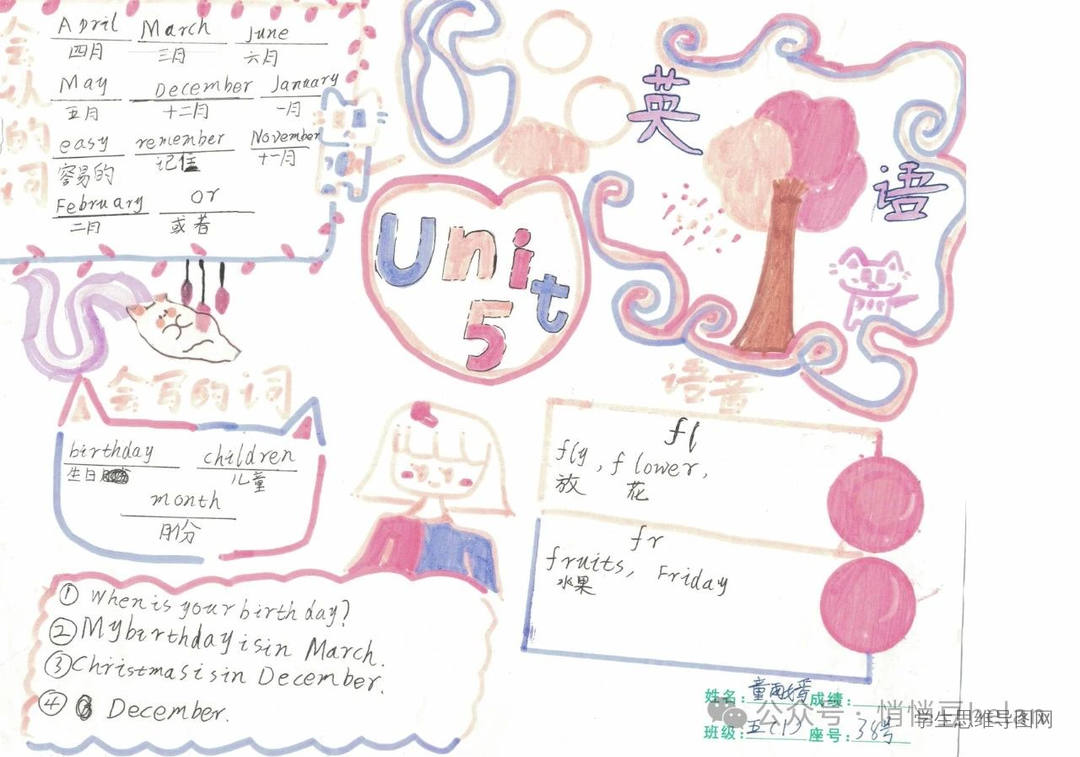 会认的词
April March June
四月 三月 六月
May December January
五月 十二月 一月
easy remember November
容易的 记住 十一月
February or
二月 或者
英语
Unit
5
会写的词
birthday children
生日 儿童
month
月份
语音
fl
fly, flower,
放 花
fr
fruits, Friday
水果
① When is your birthday?
② My birthday is in March.
③ Christmas is in December.
④ December.
姓名: 成绩:
公众号·悄悄豆
班级: 座号: 38号
学生思维导图网